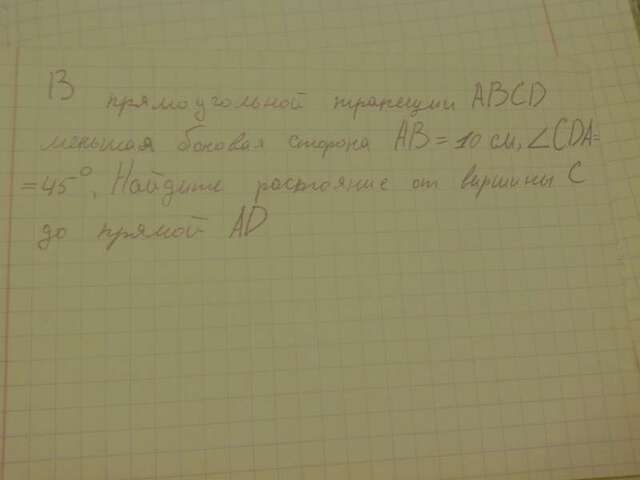 В прямоугольной трапеции ABCD
меньшая боковая сторона AB = 10 см, ∠CDA=
= 45°. Найдите растояние от виршины C
до прямой AD